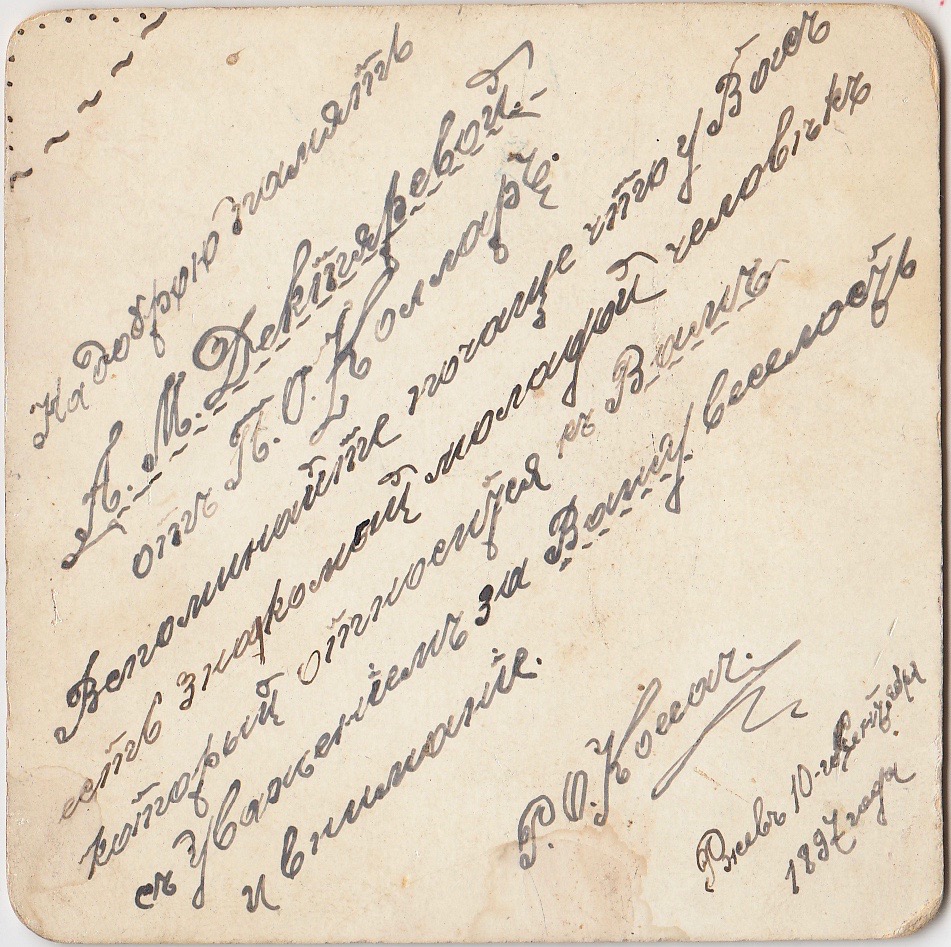 На добрую память
А. М. Дектяревой.
отъ П. О.
Вспоминайте почаще что у Васъ
есть знакомый молодой человѣкъ
который относится къ Вамъ
съ уваженіемъ за Вашу веселость
и вниманіе.
Ржевъ 10-го
1897 года